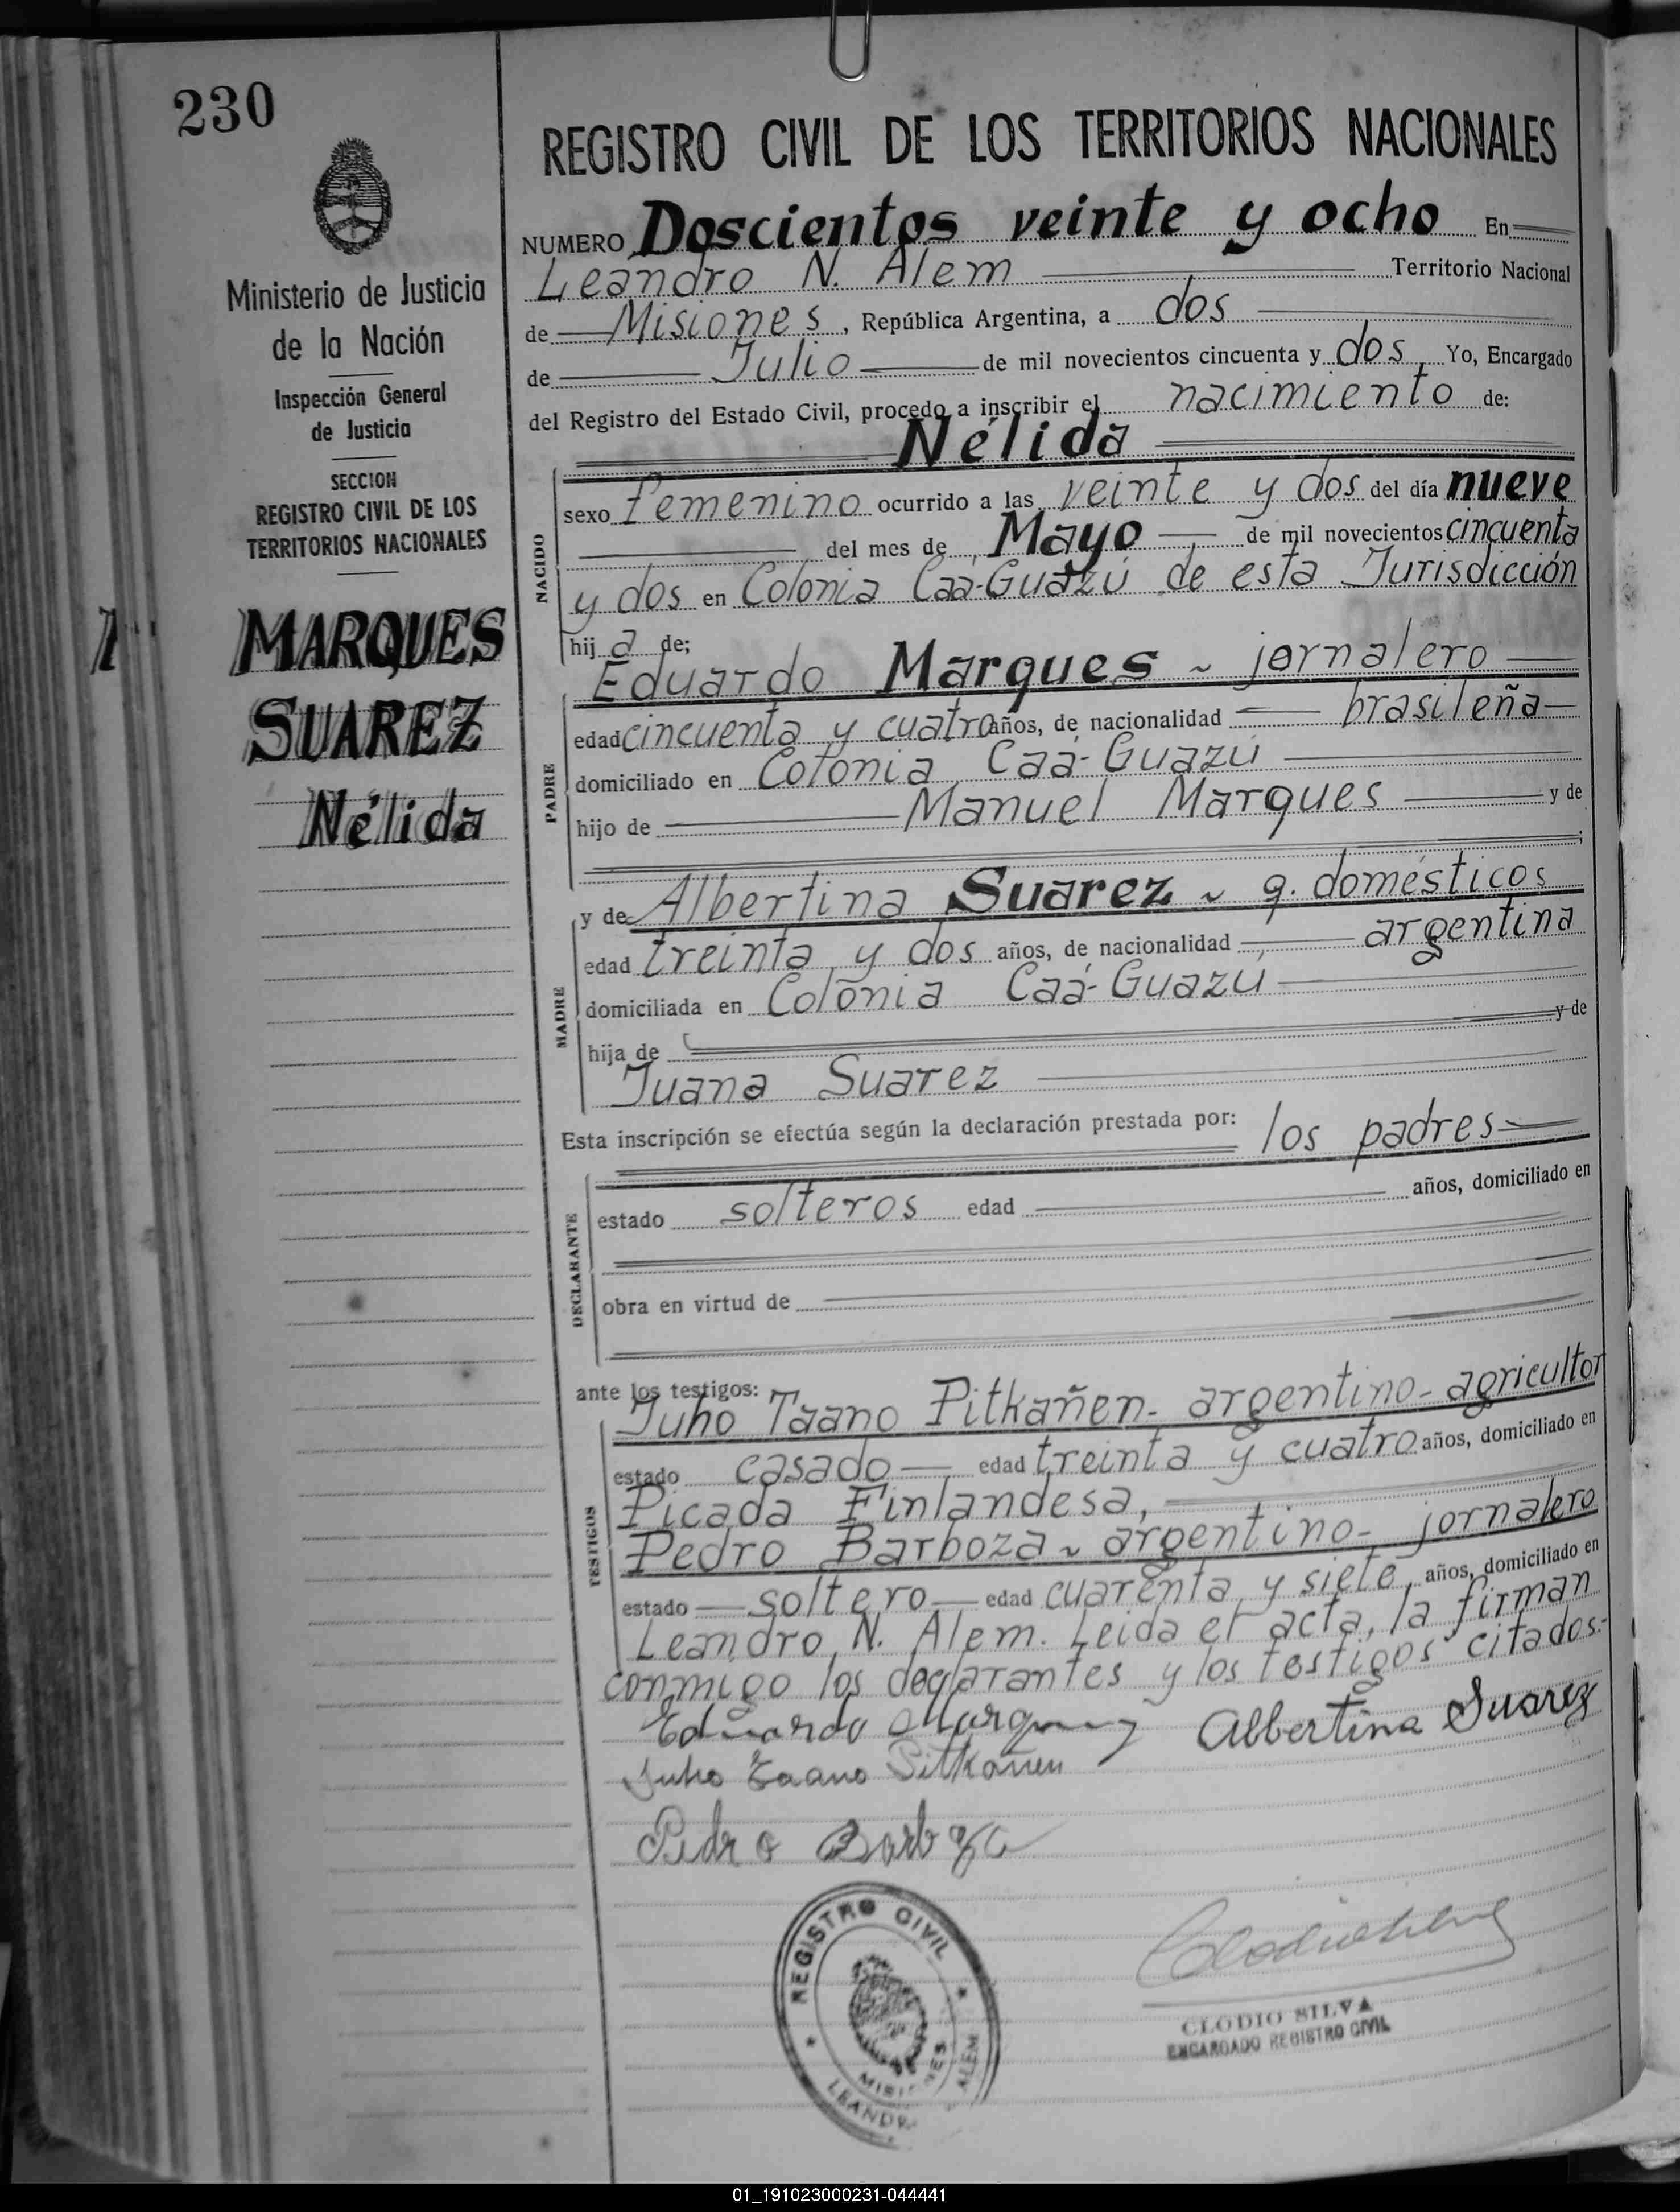 230
Ministerio de Justicia
de la Nación
Inspección General
de Justicia
SECCION
REGISTRO CIVIL DE LOS
TERRITORIOS NACIONALES
MARQUES
SUAREZ
Nélida
REGISTRO CIVIL DE LOS TERRITORIOS NACIONALES
NUMERO Doscientos veinte y ocho En
Leandro N. Alem Territorio Nacional
de Misiones, República Argentina, a dos
de Julio de mil novecientos cincuenta y dos Yo, Encargado
del Registro del Estado Civil, procedo a inscribir el nacimiento de:
Nélida
NACIDO
sexo Femenino ocurrido a las veinte y dos del día nueve
del mes de Mayo de mil novecientos cincuenta
y dos en Colonia Caá-Guazú de esta Jurisdicción
hij a de;
PADRE
Eduardo Marques ~ jornalero
edad cincuenta y cuatro años, de nacionalidad brasileña
domiciliado en Colonia Caá-Guazú
hijo de Manuel Marques y de
;
MADRE
y de Albertina Suarez ~ q. domésticos
edad treinta y dos años, de nacionalidad argentina
domiciliada en Colonia Caá-Guazú
hija de y de
Juana Suarez
Esta inscripción se efectúa según la declaración prestada por: los padres
DECLARANTE
estado solteros edad años, domiciliado en
obra en virtud de
ante los testigos:
TESTIGOS
Juho Taano Pitkañen- argentino- agricultor
estado casado edad treinta y cuatro años, domiciliado en
Picada Finlandesa,
Pedro Barboza ~ argentino- jornalero
estado soltero edad cuarenta y siete, años, domiciliado en
Leandro N. Alem. Leida el acta, la firman
conmigo los declarantes y los testigos citados:
Eduardo Marques Albertina Suarez
Juho Taano Pitkañen
Pedro Barboza
REGISTRO CIVIL
MISIONES
LEANDRO ALEM
CLODIO SILVA
ENCARGADO REGISTRO CIVIL
01_191023000231-044441